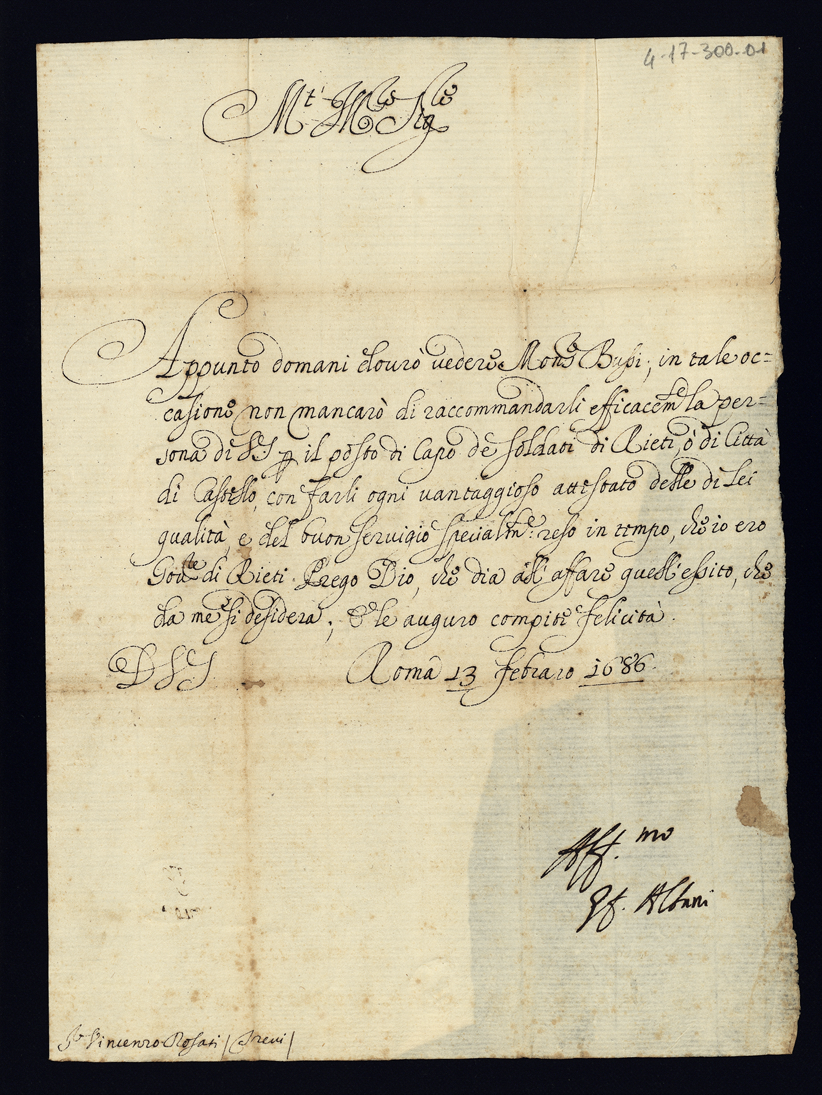 4-17-300-01
M.t Ill.re Sig.re
Appunto domani dourò vedere Mons.r Bussi; in tale oc=
casione non mancarò di raccommandarli efficacem.te la per=
sona di VS p il posto di Capo de soldati di Rieti, ò di Città
di Castello, con farli ogni vantaggioso attestato delle di Lei
qualità, e del buon servigio specialm.te reso in tempo, che io ero
Gov.re di Rieti. Prego Dio, che dia all'affare quell'essito, che
da me si desidera; & le auguro compite felicità.
D VS Roma 13 febraro 1686.
Aff.mo
Gf. Albani
S.r Vincenzo Rosati / Trevi /